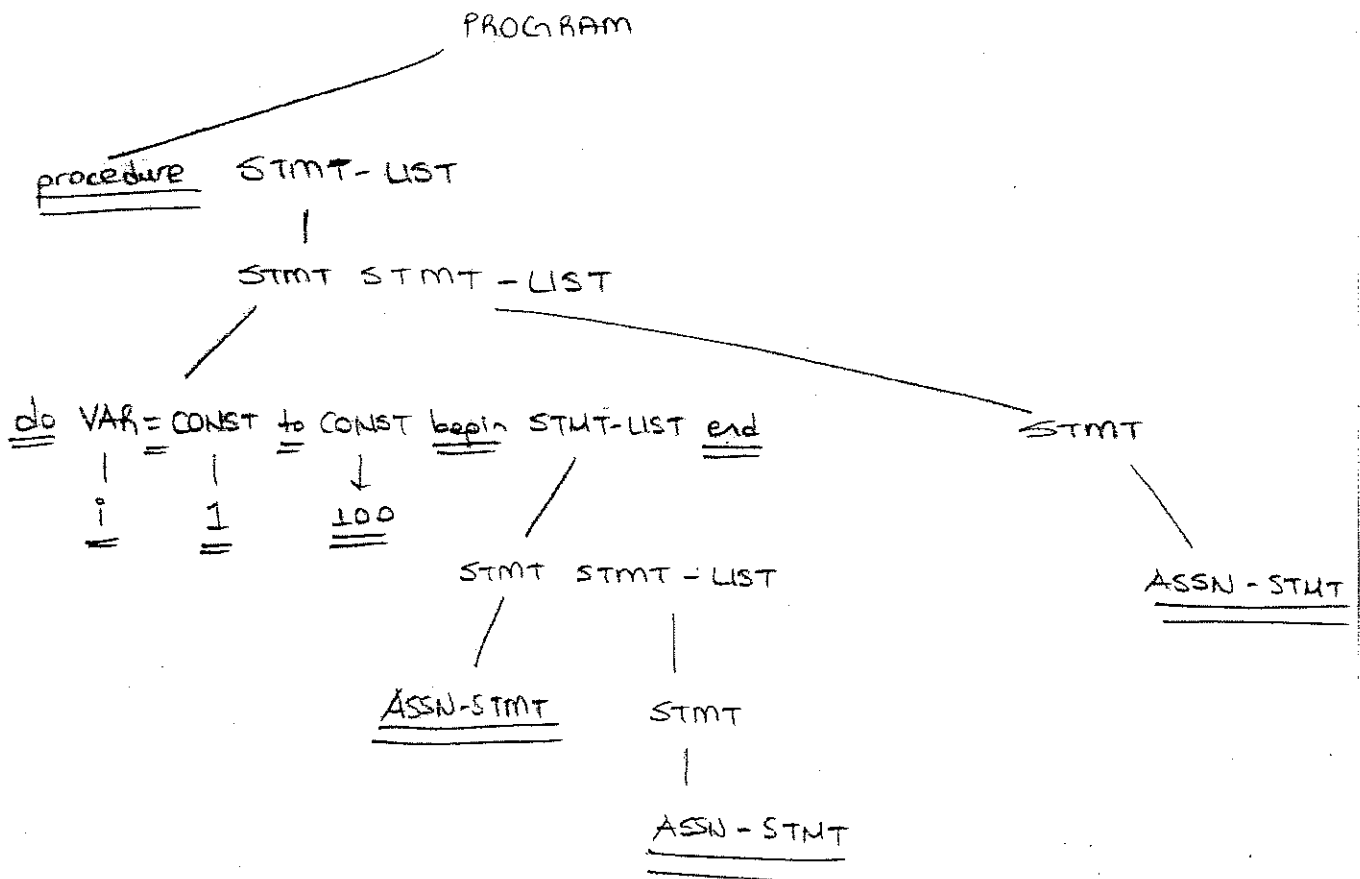 PROGRAM
procedure STMT-LIST
STMT STMT-LIST
do VAR = CONST to CONST begin STMT-LIST end
STMT
i 1 100
STMT STMT-LIST
ASSN-STMT
ASSN-STMT STMT
ASSN-STMT